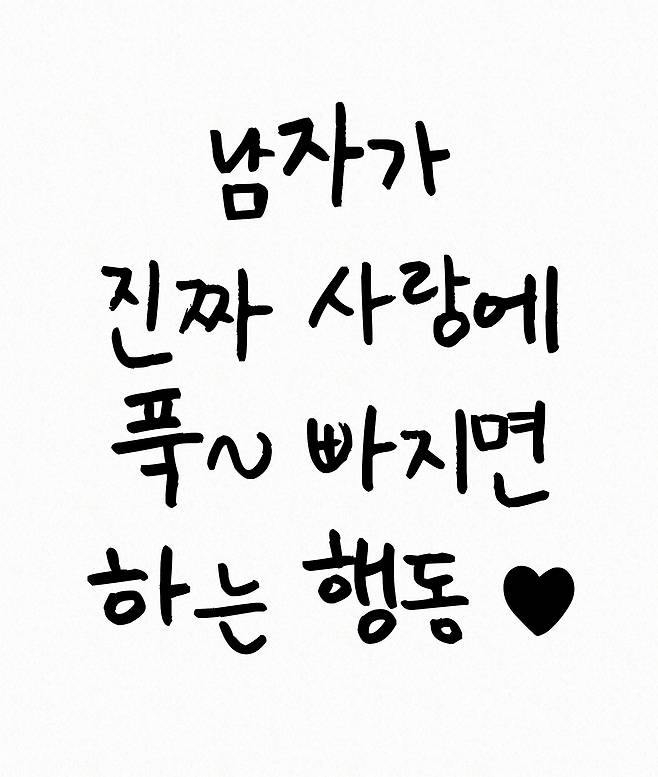 남자가
진짜 사랑에
푹~ 빠지면
하는 행동 ♥